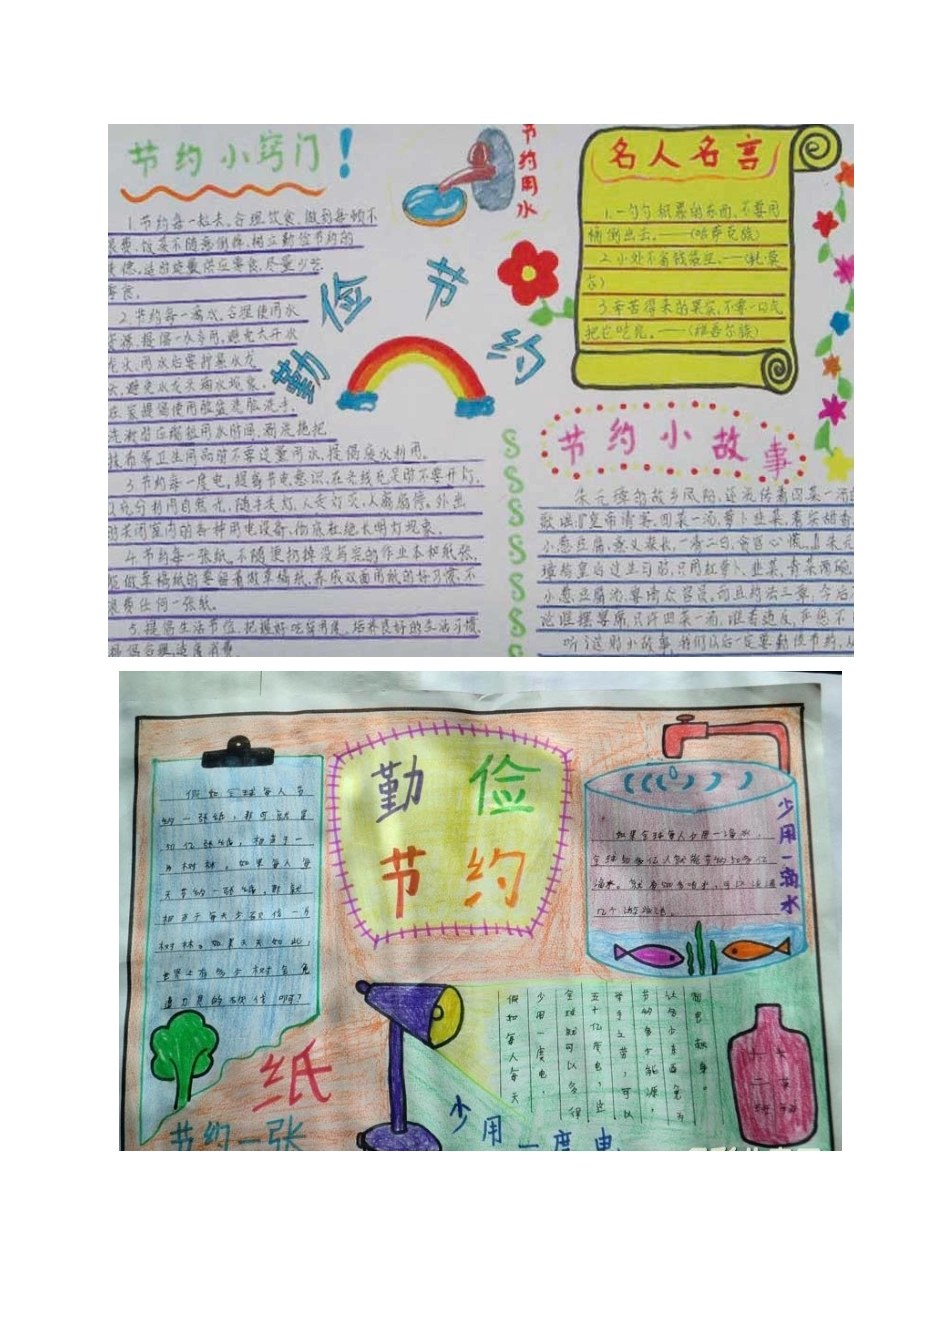 节约小窍门！
1.节约每一粒米。合理饮食,做到每顿不
浪费,饭菜不随意倒掉,树立勤俭节约的
美德,适时按量供应零食,尽量少吃
零食。
2.节约每一滴水。合理使用水
资源,提倡一水多用,避免大开水
龙头,用水后要拧紧水龙
头,避免水龙头滴水现象。
在家提倡使用脸盆洗脸洗手,
洗漱时应缩短用水时间,刷洗拖把
抹布等卫生用品时不要过量用水,提倡废水利用。
3.节约每一度电。提高节电意识,在光线充足时不要开灯,
以充分利用自然光,随手关灯,人走灯灭,人离扇停。外出
时关闭室内的各种用电设备,彻底杜绝长明灯现象。
4.节约每一张纸。不随便扔掉没写完的作业本和纸张,
能做草稿纸的要留着做草稿纸,养成双面用纸的好习惯,不
浪费任何一张纸。
5.提倡生活节俭,把握好吃穿用度,培养良好的生活习惯,
提倡合理,适度消费。
节约用水
勤俭节约
名人名言
1.一勺勺积累的东西,不要用
桶倒出去。——(哈萨克族)
2.小处不省钱袋空。——(托·莫
尔)
3.辛苦得来的果实,不要一口气
把它吃光。——(维吾尔族)
节约小故事
朱元璋的故乡凤阳,还流传着四菜一汤的
歌谣:“皇帝请客,四菜一汤,萝卜韭菜,着实甜香;
小葱豆腐,意义深长,一清二白,贪官心慌。”朱元
璋给皇后过生日时,只用红萝卜、韭菜,青菜两碗,
小葱豆腐汤,宴请众官员,而且约法三章:今后不
论谁摆宴席,只许四菜一汤,谁若违反,严惩不
听了这则小故事,我们以后一定要勤俭节约,
勤俭
节约
假如全球每人节
约一张纸,那可就是
50亿张纸,相当于一
片树林。如果每人每
天节约一张纸,那就
相当于每天少砍伐一片
树林。如果天天如此,
世界上有多少树会免
遭刀具的砍伐啊?
纸
节约一张
少用一滴水
如果全球每人少用一滴水,
全球50多亿人就能节约50多亿
滴水。
几个游泳池。
假如每人每天
少用一度电,
全球就可以多得
五十亿度电,这
举手之劳,可以
节约多少能源,
少用一度电